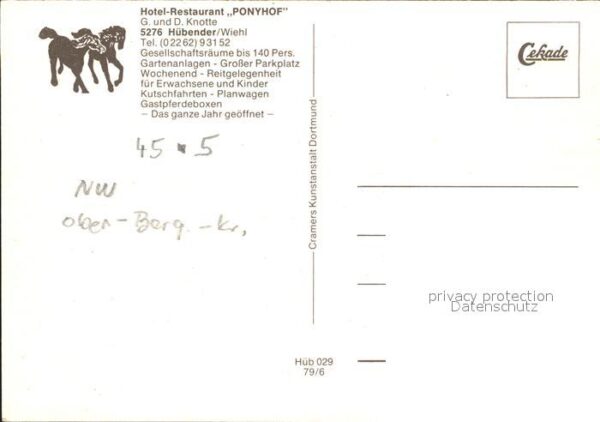 Hotel-Restaurant „PONYHOF"
G. und D. Knotte
5276 Hübender/Wiehl
Tel. (02262) 93152
Gesellschaftsräume bis 140 Pers.
Gartenanlagen - Großer Parkplatz
Wochenend - Reitgelegenheit
für Erwachsene und Kinder
Kutschfahrten - Planwagen
Gastpferdeboxen
– Das ganze Jahr geöffnet –
45 - 5
NW
ober-Berg.-Kr.
Cramers Kunstanstalt Dortmund
Cekade
privacy protection
Datenschutz
Hüb 029
79/6